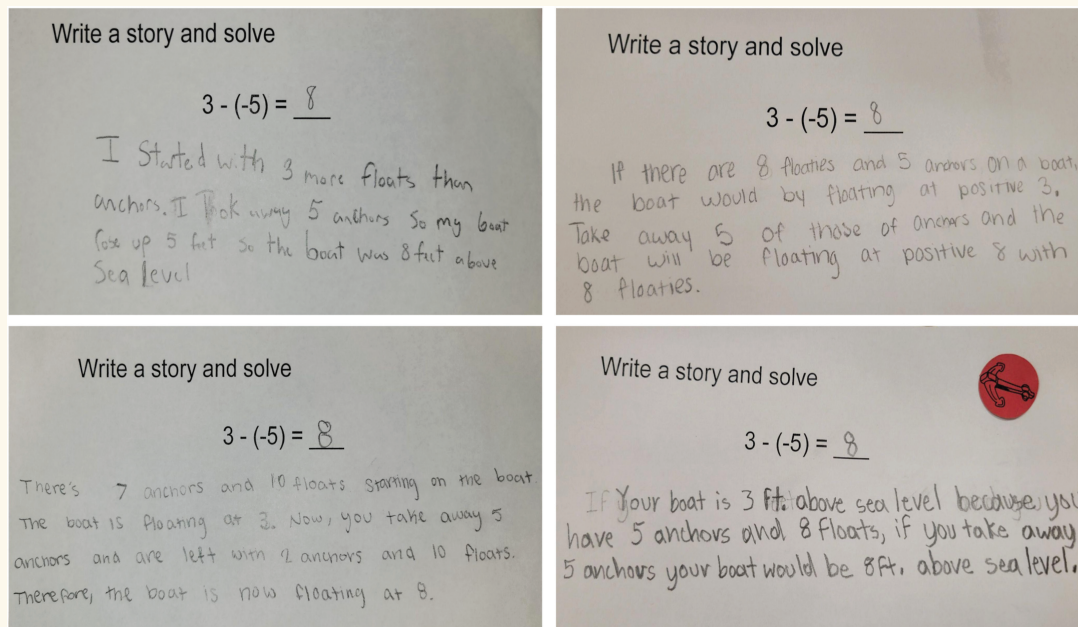 Write a story and solve
3 - (-5) = 8
I Started with 3 more floats than
anchors. I Took away 5 anchors so my boat
rose up 5 feet so the boat was 8 feet above
Sea level
Write a story and solve
3 - (-5) = 8
If there are 8 floaties and 5 anchors on a boat,
the boat would by floating at positive 3.
Take away 5 of those of anchors and the
boat will be floating at positive 8 with
8 floaties.
Write a story and solve
3 - (-5) = 8
There's 7 anchors and 10 floats starting on the boat.
The boat is floating at 3. Now, you take away 5
anchors and are left with 2 anchors and 10 floats.
Therefore, the boat is now floating at 8.
Write a story and solve
3 - (-5) = 8
If Your boat is 3 ft. above sea level because you
have 5 anchors and 8 floats, if you take away
5 anchors your boat would be 8ft. above sea level.